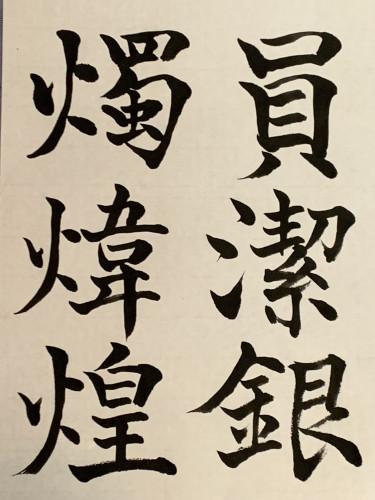 員潔銀
燭煒煌